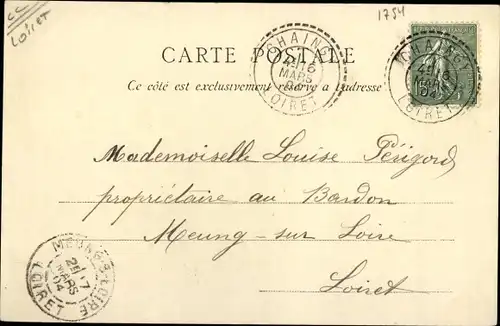 CC
Loiret
1754
CARTE POSTALE
Ce côté est exclusivement réservé à l'adresse
CHAINGY
16
MARS
04
LOIRET
CHAINGY
16
MARS
04
LOIRET
Mademoiselle Louise Périgord
propriétaire au Bardon
Meung-sur Loire
Loiret
MEUNG-S-LOIRE
17
MARS
04
LOIRET